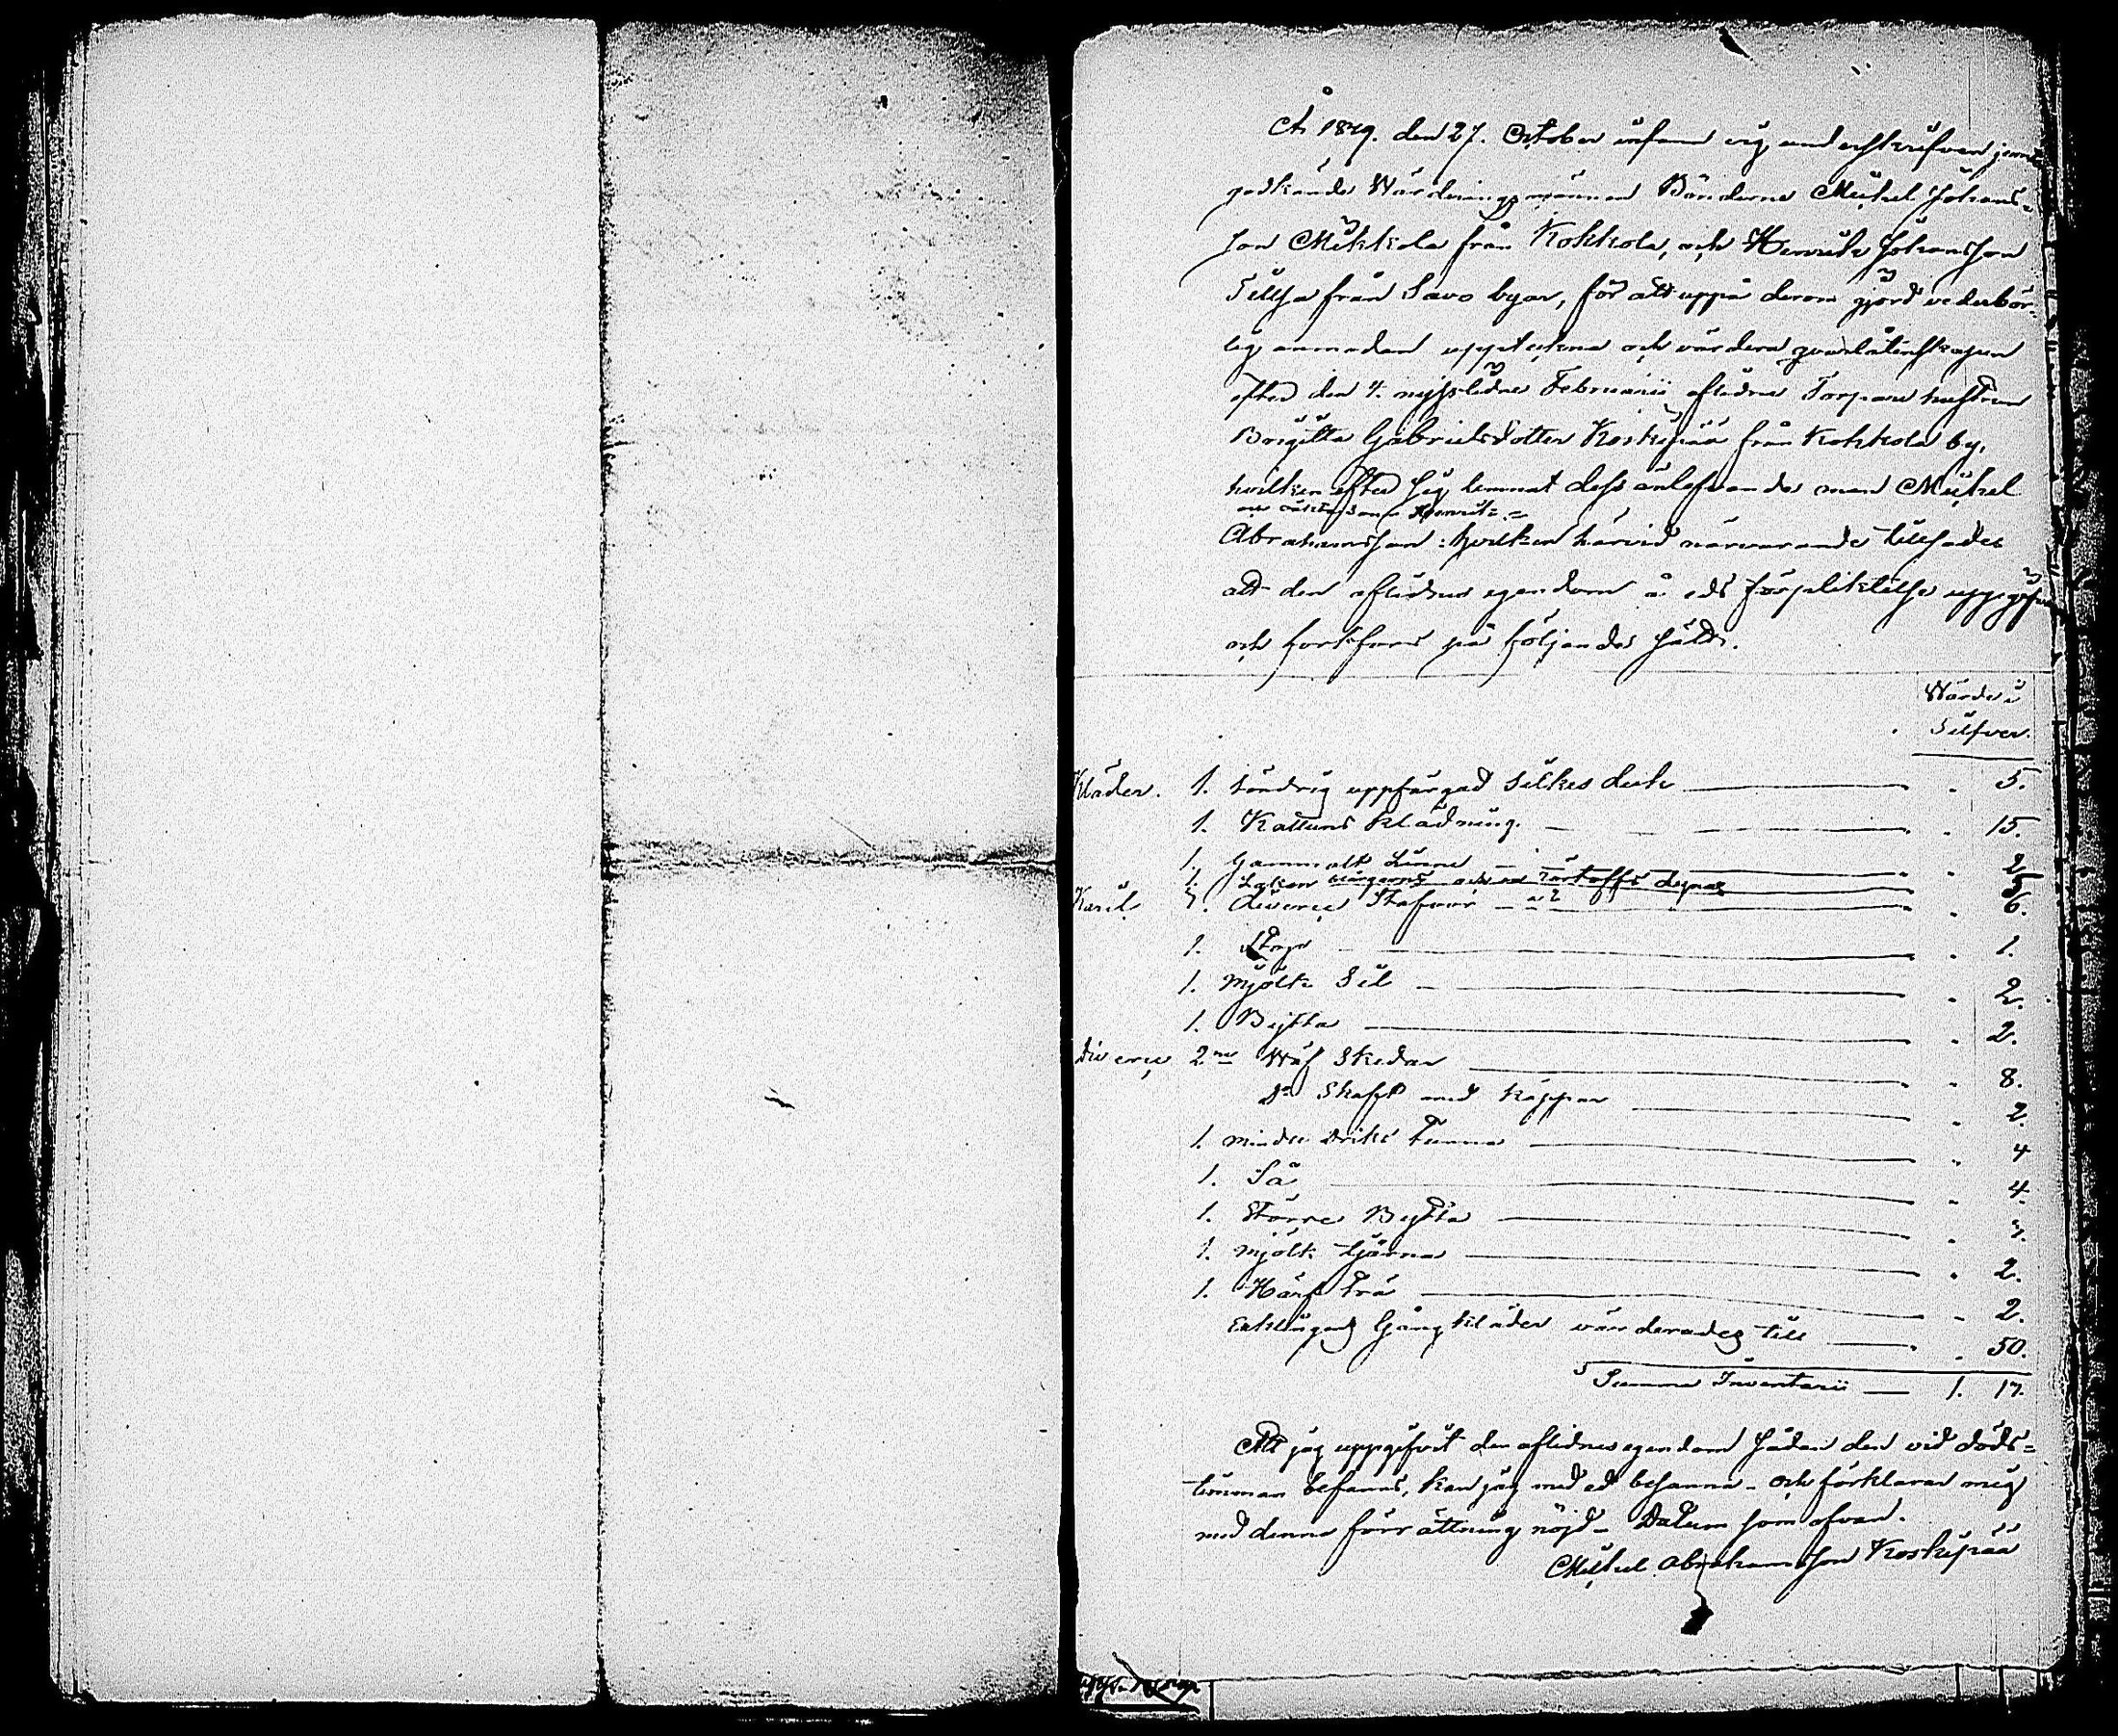 År 1849. den 27. October infann sig undertskrifven jemte
godkände Wärderingsmännen Bönderne Mickel Johans=
son Mikkola från Kokkola, och Henrik Johansson
Tillsa från Savo byar, för att uppå derom gjord vederbör=
lig anmodan uppteckna och värdera qvarlåtenskapen
efter den 4. nyssledne Februarii aflidne Torpare hustrun
Brigitta Gabrielsdotter Koskipää från Kokkola by,
hvilken efter sig lemnat dess änkefvande man Mickel
Henrik =
Abrahamsson: hvilken härvid närvarande tillsades
att den aflidnes egendom å eds förpliktelse uppgifva
och fortfors på följande sätt.
Wärde i
Silfver.
Kläder. 1. söndrig uppfärgad Silkes duk 5.
1. Kattuns klädning. 15.
1. Gammalt Linne 2.
1. Lakan och en dyna 5
Käril 3. diverse Stafvor a 2 6.
1. Stop 1.
1. Mjölk Sil 2.
1. Bytta 2.
Diverse 2ne Wäf Skedar 8.
do Skaft med käppar 2.
1. mindre Driks Tunna 4
1. Så 4.
1. Större Bytta 3.
1. Mjölk tjärna 2.
1. Härf trä 2.
Enklingens Gångkläder värderades till 50.
Summa Inventarii 1. 17.
Att jag uppgifvit den aflidnes egendom sådan den vid döds=
timman befanns, kan jag med ed besanna - och förklarar mig
med denna förrättning nöjd - Datum som ofvan.
Mickel Abrahamsson Koskipää